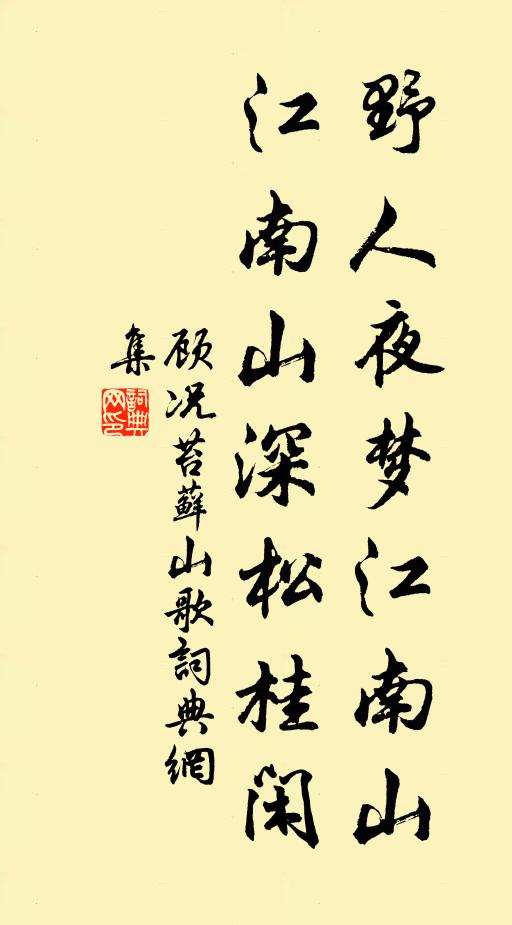 野人夜梦江南山
江南山深松桂闲
顾况苔藓山歌詞典網
集
詞典
网印